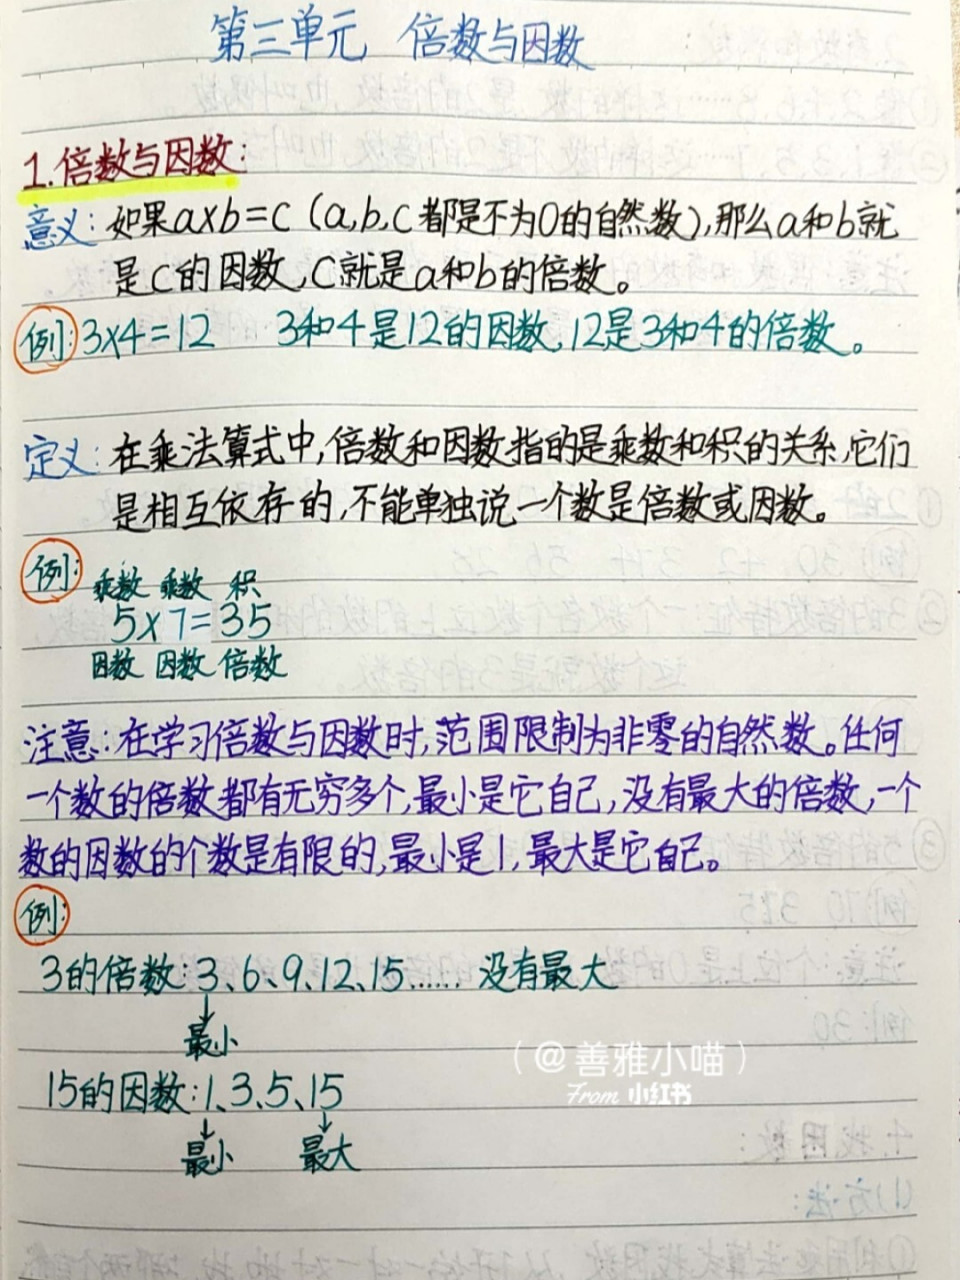 第三单元 倍数与因数
1.倍数与因数:
意义:如果a×b=c(a,b,c都是不为0的自然数),那么a和b就
是c的因数,c就是a和b的倍数。
例:3×4=12 3和4是12的因数,12是3和4的倍数。
定义:在乘法算式中,倍数和因数指的是乘数和积的关系,它们
是相互依存的,不能单独说一个数是倍数或因数。
例: 乘数 乘数 积
5×7=35
因数 因数 倍数
注意:在学习倍数与因数时,范围限制为非零的自然数。任何
一个数的倍数都有无穷多个,最小是它自己,没有最大的倍数,一个
数的因数的个数是有限的,最小是1,最大是它自己。
例:
3的倍数:3、6、9、12、15…… 没有最大
最小
(@善雅小喵)
From 小红书
15的因数:1、3、5、15
最小 最大